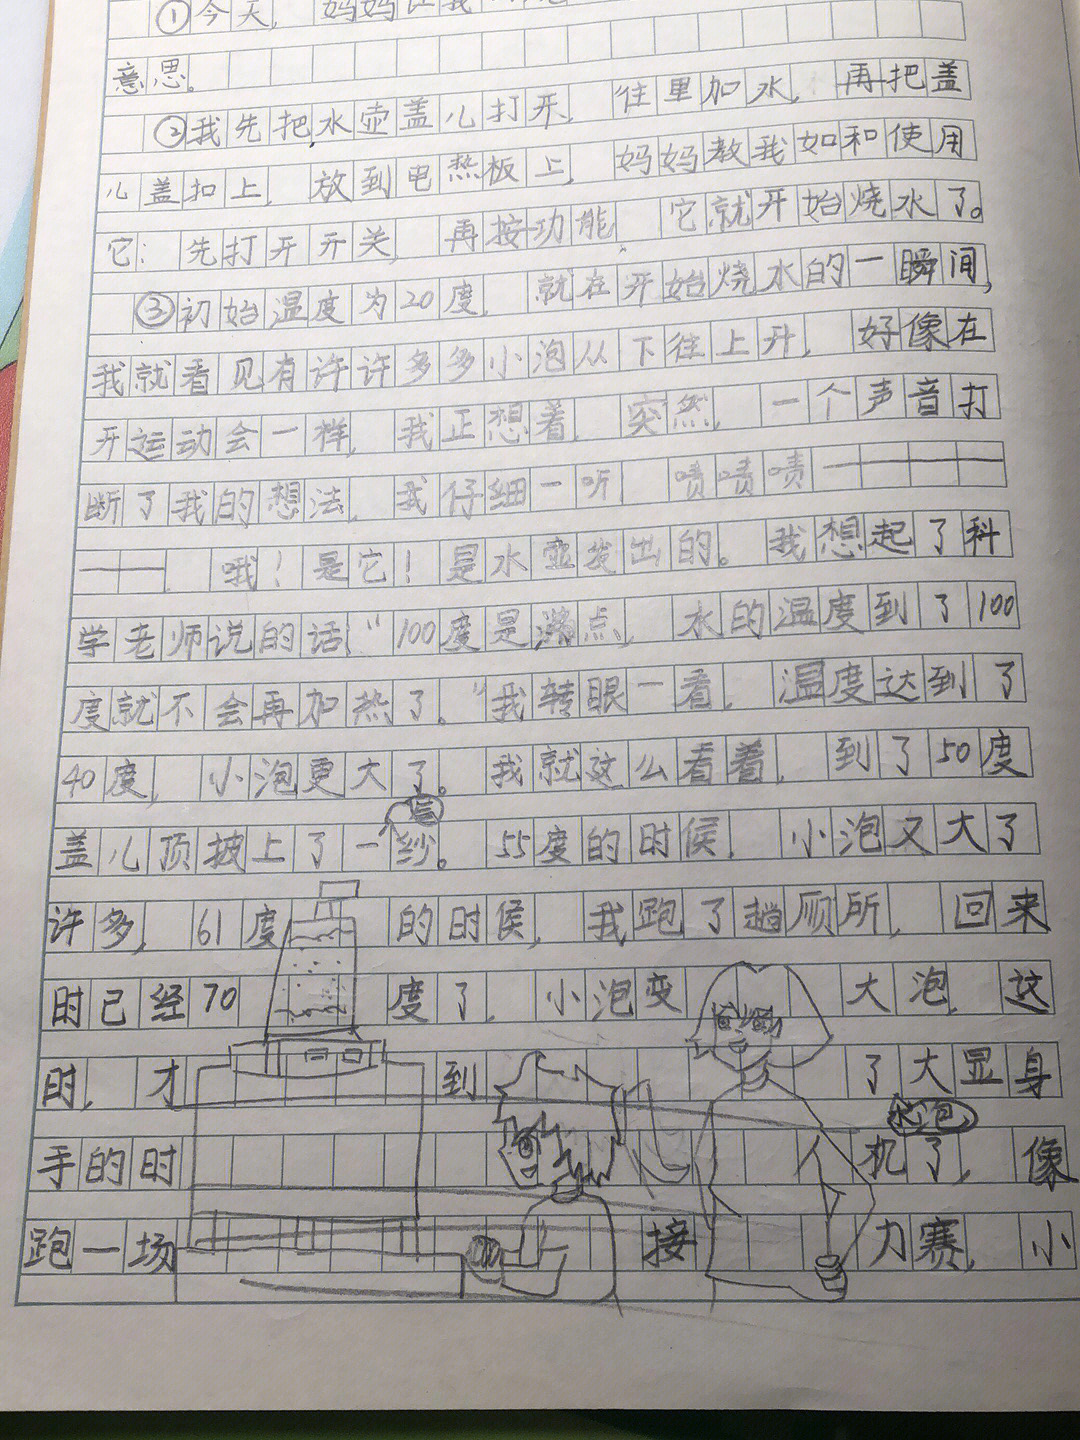 ①今天，妈妈让我
意思。
②我先把水壶盖儿打开，往里加水，再把盖
儿盖扣上，放到电热板上，妈妈教我如和使用
它：先打开开关，再按功能，它就开始烧水了。
③初始温度为20度，就在开始烧水的一瞬间，
我就看见有许许多多小泡从下往上升，好像在
开运动会一样，我正想着，突然，一个声音打
断了我的想法，我仔细一听，啧啧啧————
——，哦！是它！是水壶发出的。我想起了科
学老师说的话：“100度是沸点，水的温度到了100
度就不会再加热了。”我转眼一看，温度达到了
40度，小泡更大了。我就这么看着，到了50度
盖儿顶披上了一层纱。55度的时侯，小泡又大了
许多，61度的时侯，我跑了趟厕所，回来
时已经70度了，小泡变大泡，这
时，才到了大显身
手的时机了，水泡人像
跑一场接力赛，小